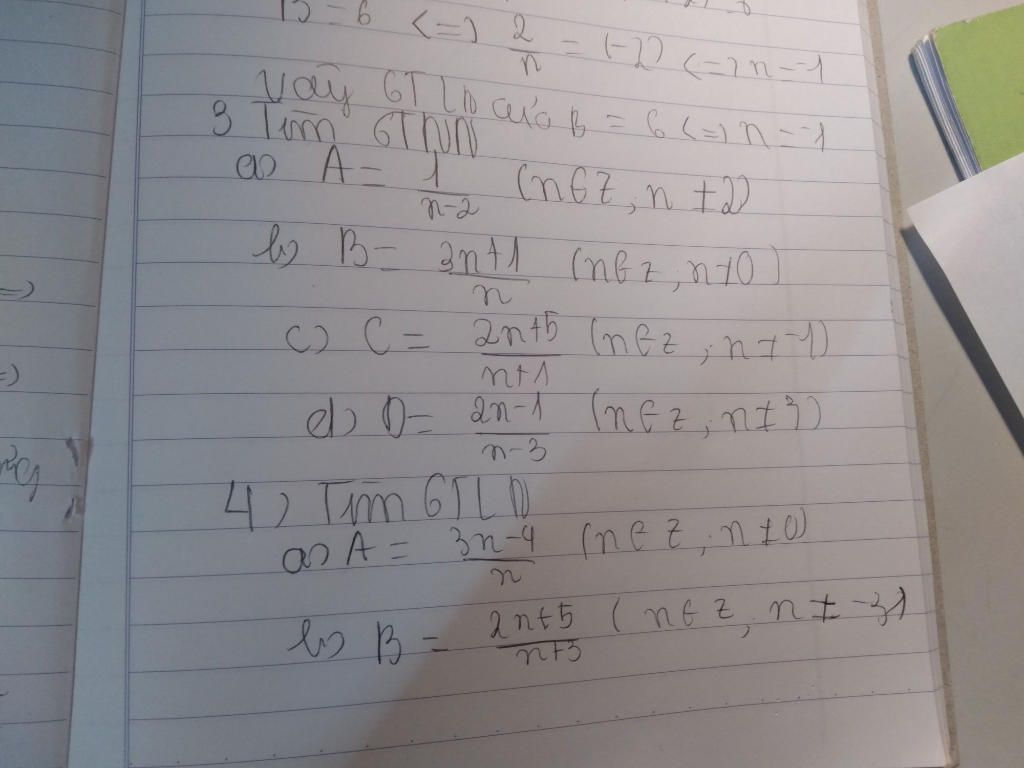 B = 6 <=> 2/n = (-2) <=> n = -1
Vậy GTLN của B = 6 <=> n = -1
3 Tìm GTNN
a) A = 1/(n-2) (n∈Z, n ≠ 2)
b) B = (3n+1)/n (n∈Z, n≠0)
c) C = (2n+5)/(n+1) (n∈Z, n ≠ -1)
d) D = (2n-1)/(n-3) (n∈Z, n≠3)
4) Tìm GTLN
a) A = (3n-4)/n (n∈Z, n≠0)
b) B = (2n+5)/(n+3) (n∈Z, n ≠ -3)